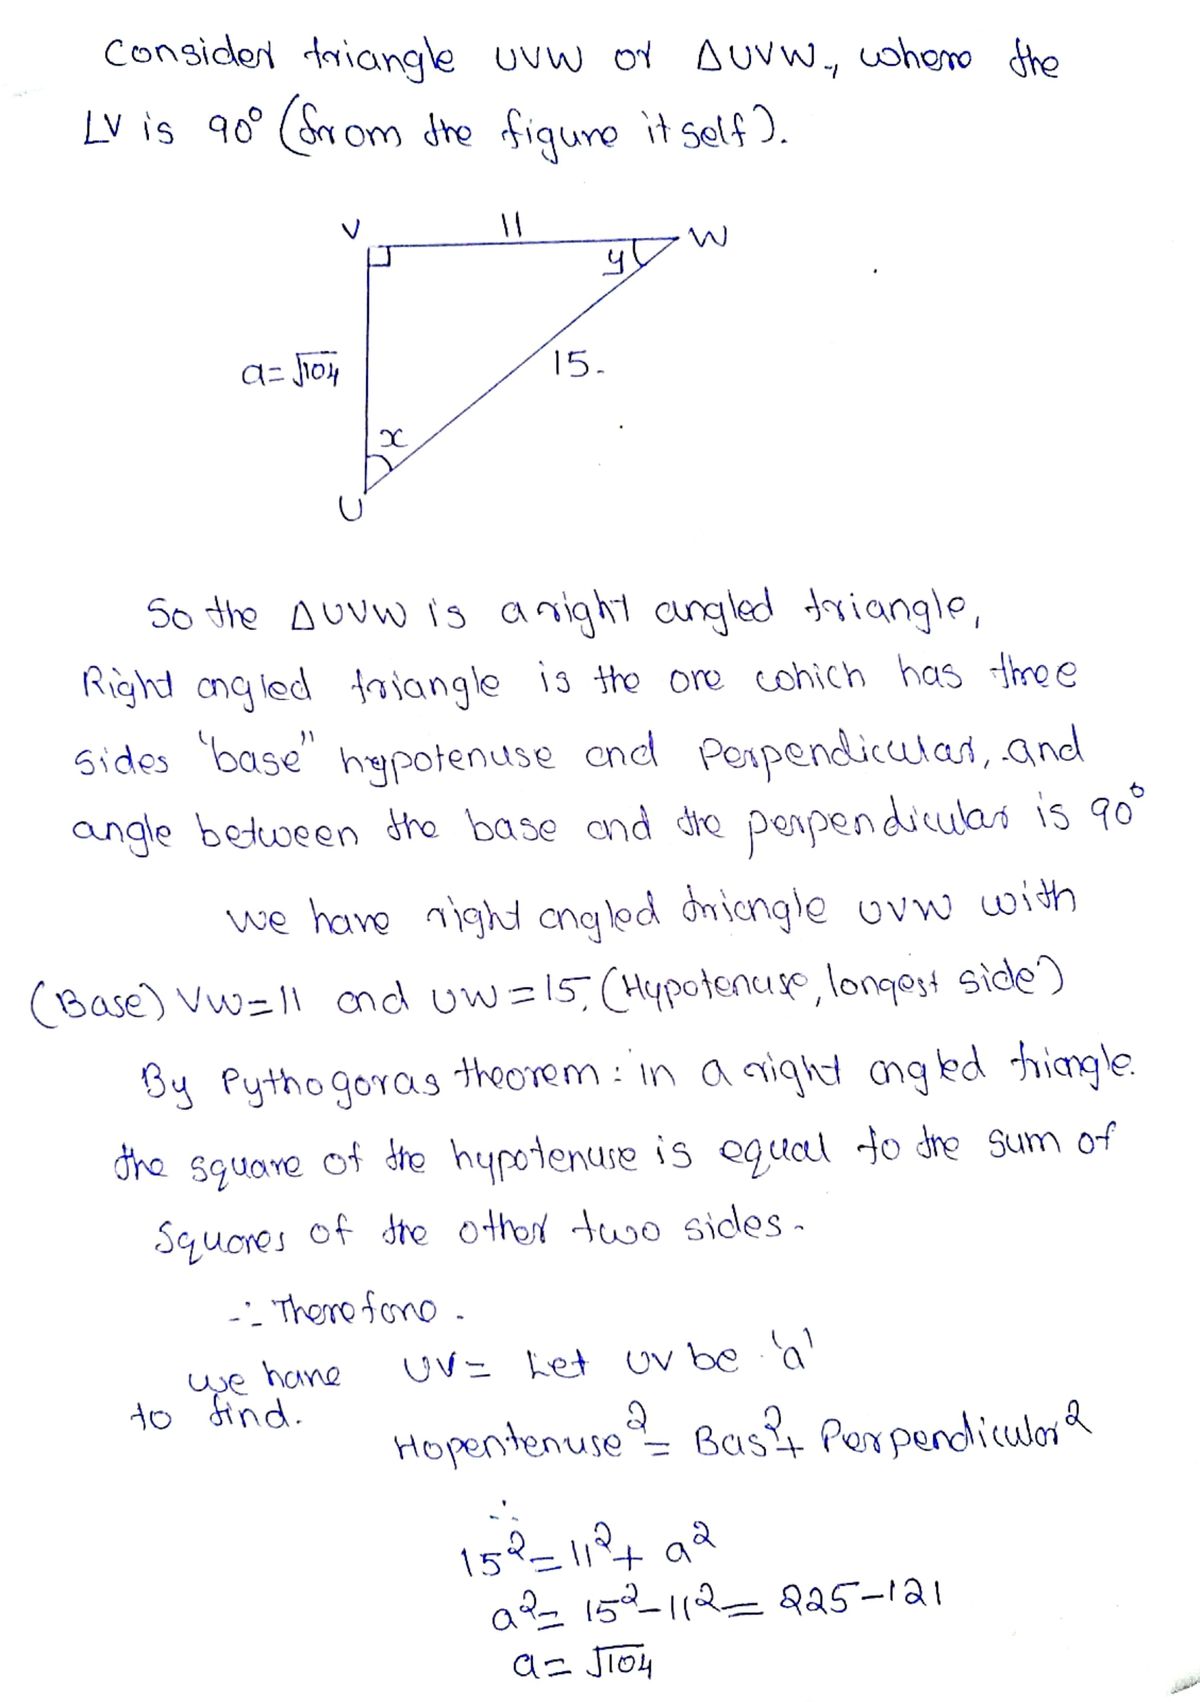 Consider triangle UVW or ΔUVW, where the
∠V is 90° (from the figure itself).
V 11 W
y
a=√104 15.
x
U
So the ΔUVW is a right angled triangle,
Right angled triangle is the one which has three
sides "base" hypotenuse and Perpendicular, and
angle between the base and the perpendicular is 90°
We have right angled triangle UVW with
(Base) VW=11 and UW=15, (Hypotenuse, longest side)
By Pythogoras theorem: in a right angled triangle.
the square of the hypotenuse is equal to the sum of
Squares of the other two sides.
∴ Therefore.
we have UV= Let UV be 'a'
to find.
Hopentenuse²= Bas²+ Perpendicular²
∴
15²=11²+ a²
a²= 15²-11²= 225-121
a= √104